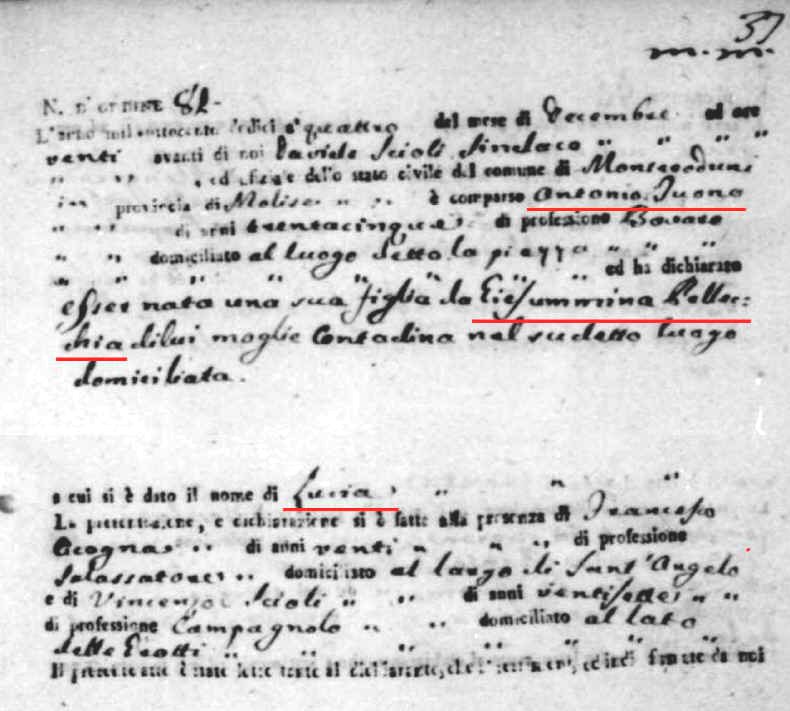 37
m. m.
N. D'ORDINE 82-
L'anno mil ottocento sedici a' quattro del mese di Decembre ad ore
venti avanti di noi Davide Scioli Sindaco " " "
" " , ed ufiziale dello stato civile del comune di Monteroduni
in provincia di Molise " " è comparso Antonio Iuono
" " di anni trentacinque di professione Bovaro
" " domiciliato al luogo detto la piazza " " "
" " " " " " ed ha dichiarato
esser nata una sua figlia da Giesummina Pellec=
chia di lui moglie Contadina nel sudetto luogo
domiciliata.
a cui si è dato il nome di Lucia " " "
La presentazione, e dichiarazione si è fatta alla presenza di Francesco
Cicogna " di anni venti " " " di professione
Salassatore " domiciliato al largo di Sant'Angelo
e di Vincenzo Scioli " " di anni ventisette " "
di professione Campagnolo " " domiciliato al lato
delle " " " " " "
Il presente atto è stato letto al dichiarante, ed indi firmato da noi